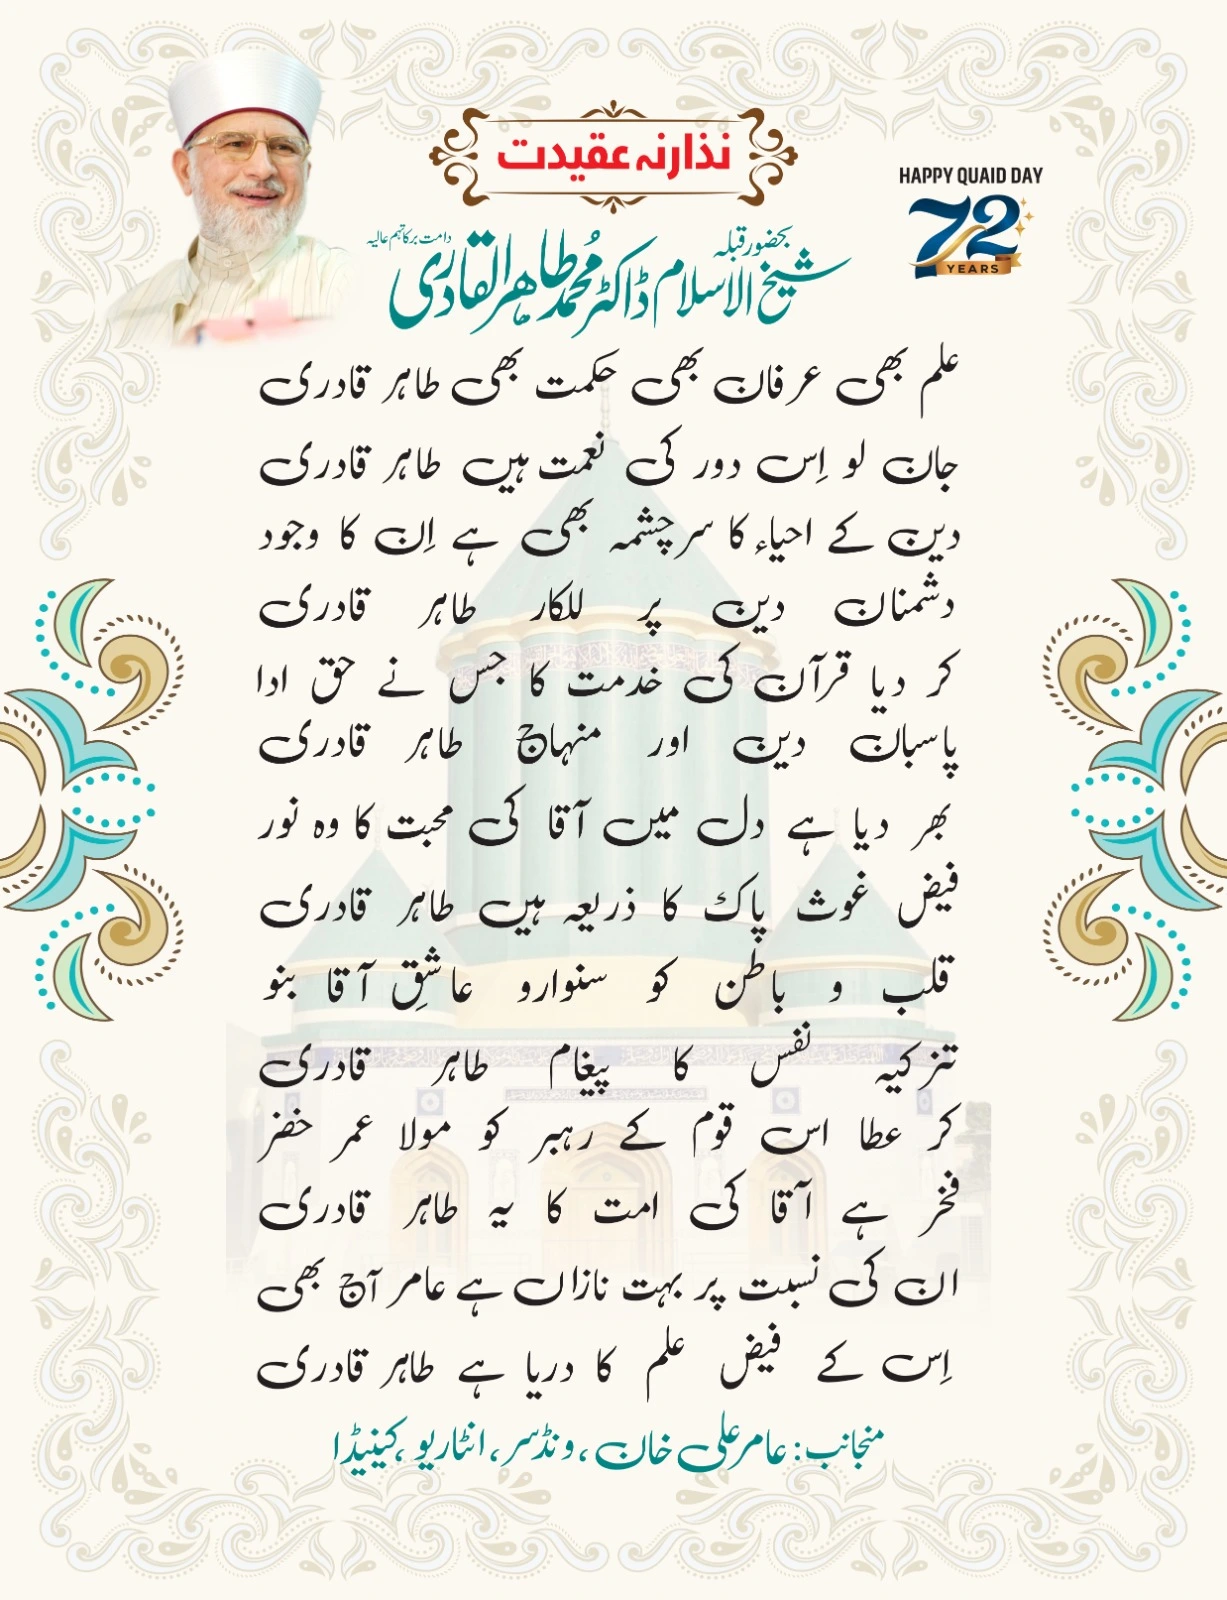 نذارنہ عقیدت
HAPPY QUAID DAY
72
YEARS
بحضور قبلہ
شیخ الاسلام ڈاکٹر محمد طاہر القادری دامت برکاتہم عالیہ
علم بھی عرفان بھی حکمت بھی طاہر قادری
جان لو اِس دور کی نعمت ہیں طاہر قادری
دین کے احیاء کا سرچشمہ بھی ہے اِن کا وجود
دشمنان دین پر للکار طاہر قادری
کر دیا قرآن کی خدمت کا جس نے حق ادا
پاسبان دین اور منہاج طاہر قادری
بھر دیا ہے دل میں آقا کی محبت کا وہ نور
فیض غوث پاک کا ذریعہ ہیں طاہر قادری
قلب و باطن کو سنوارو عاشقِ آقا بنو
تزکیہ نفس کا پیغام طاہر قادری
کر عطا اس قوم کے رہبر کو مولا عمر خضر
فخر ہے آقا کی امت کا یہ طاہر قادری
ان کی نسبت پر بہت نازاں ہے عامر آج بھی
اِس کے فیض علم کا دریا ہے طاہر قادری
منجانب: عامر علی خان، ونڈسر، انٹاریو، کینیڈا